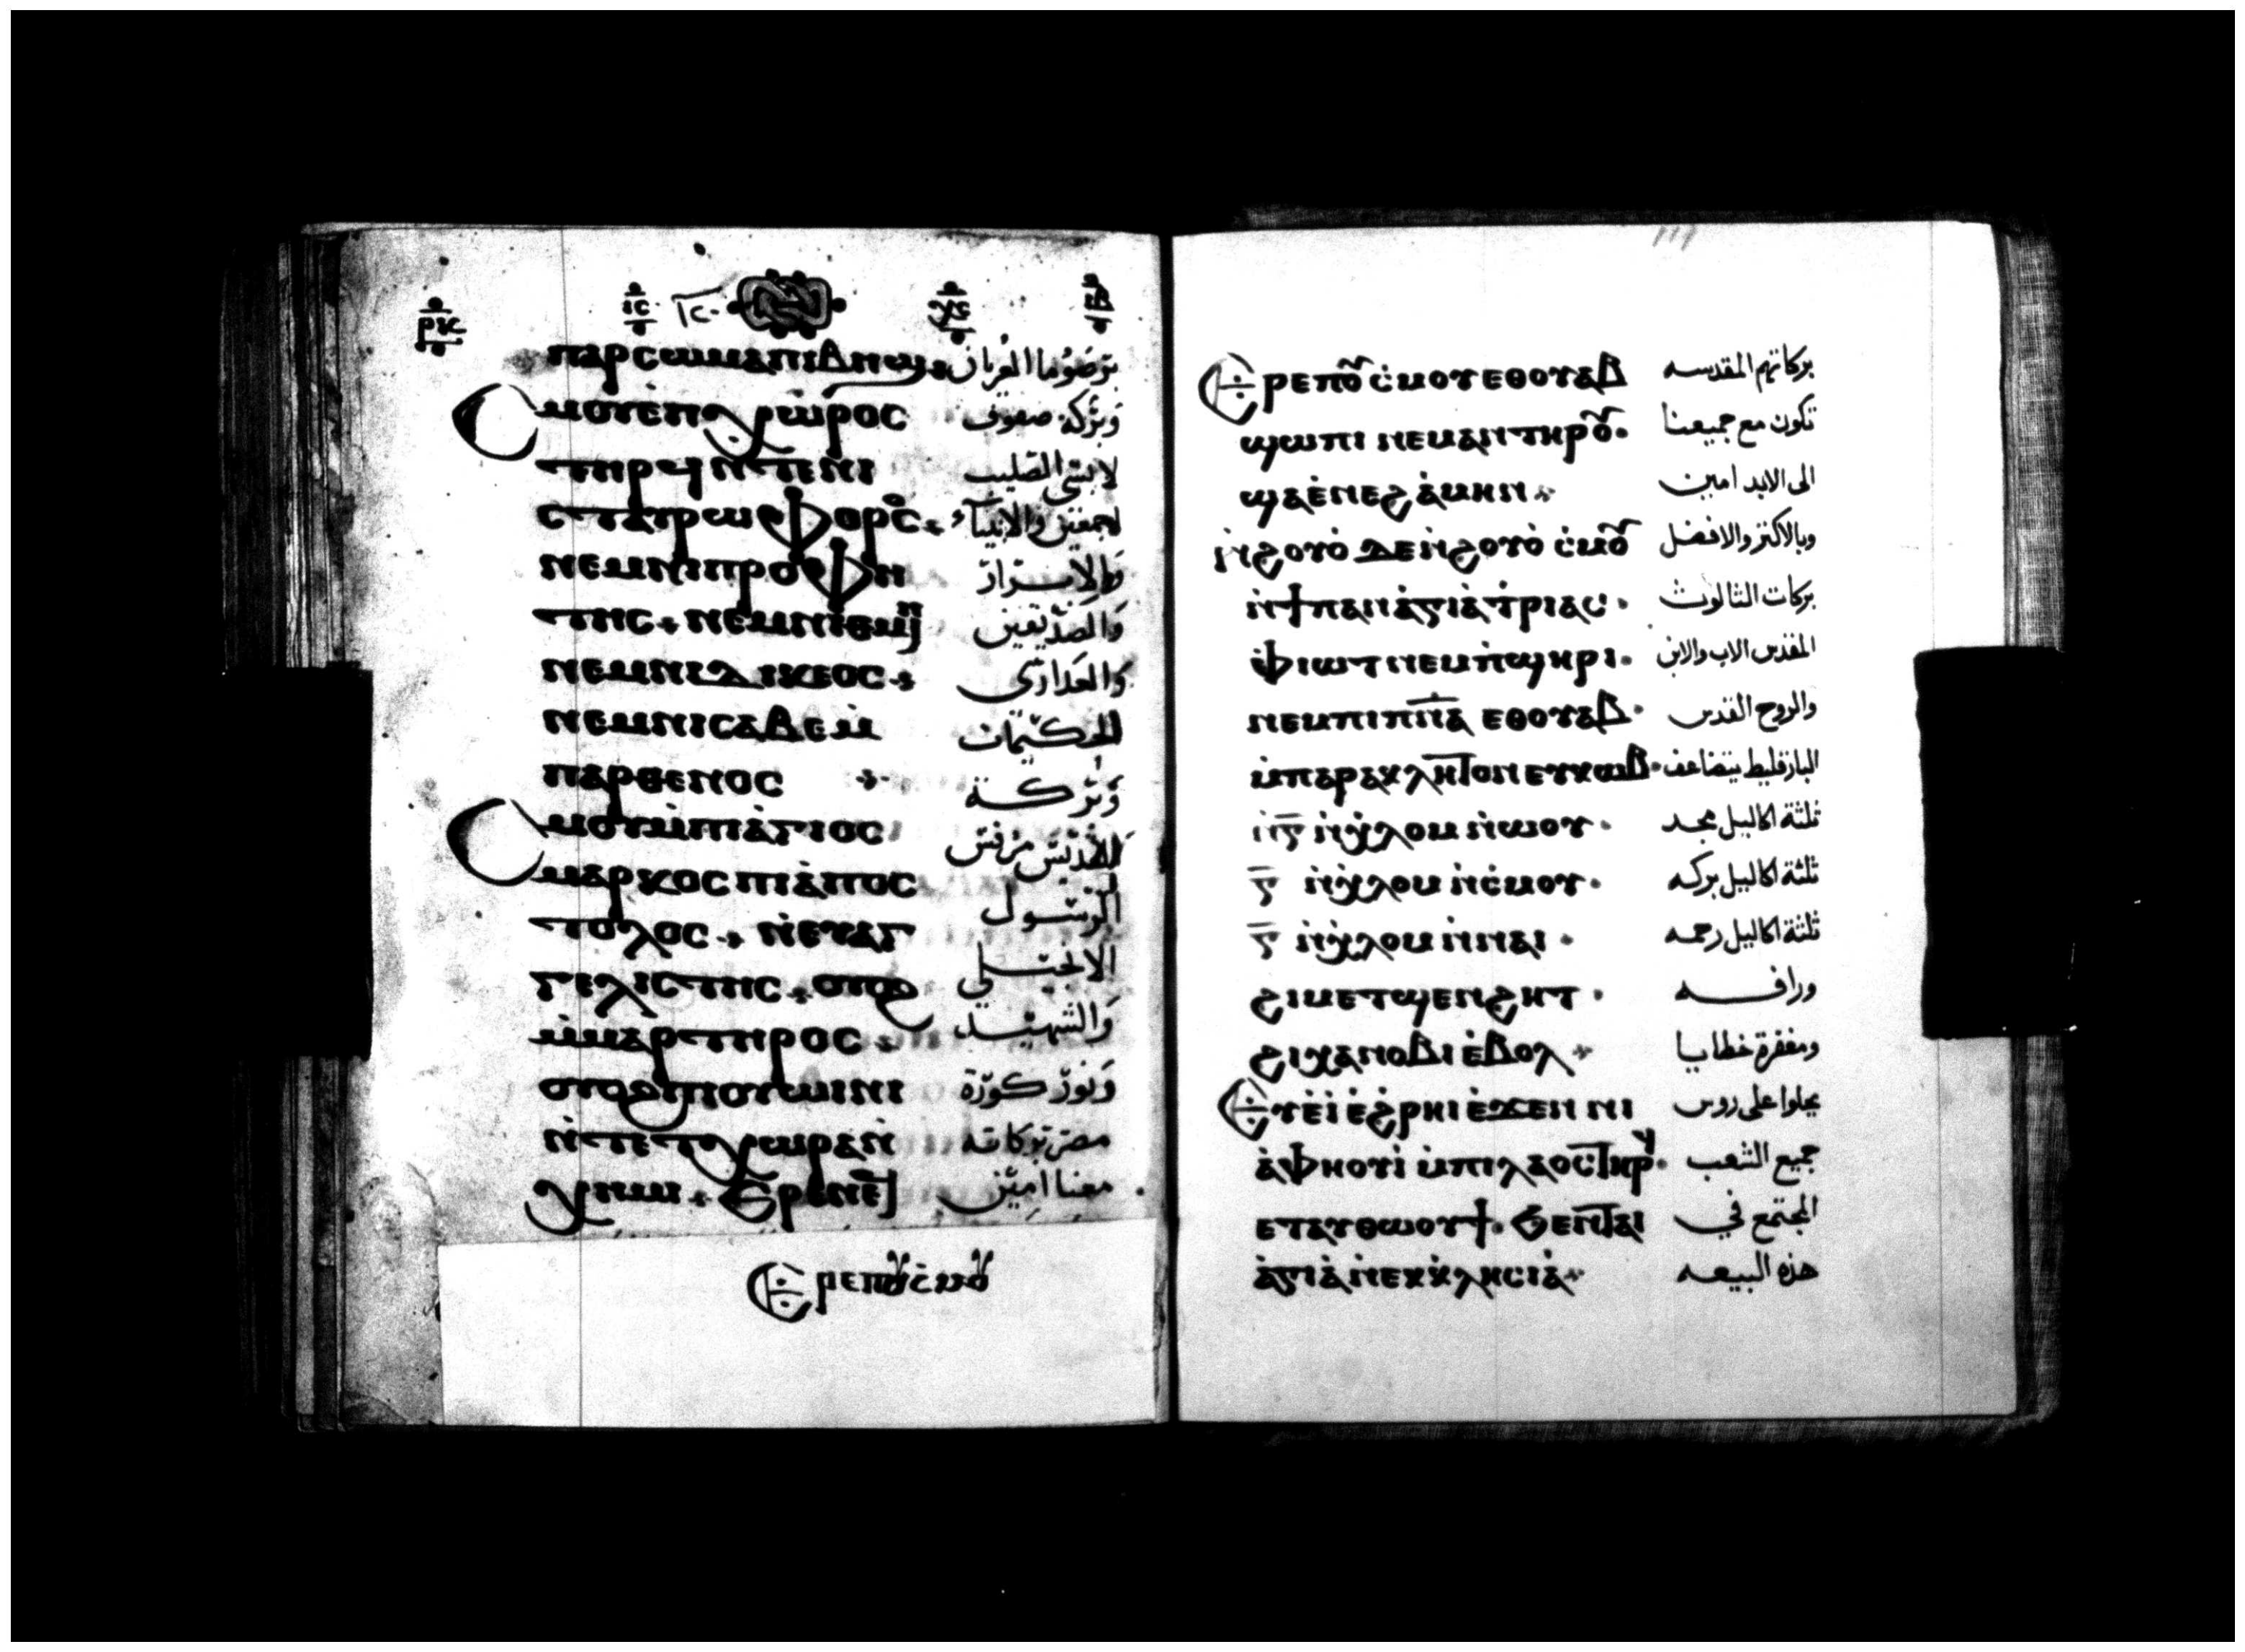 ⲣⲓⲥ ⲓⲥ ⲭⲥ ⲓⲃ
ⲡⲁⲣⲥⲱⲙⲁ ⲡⲓⲃⲏϣ برصوما العريان
ⲥⲙⲟⲩ ⲉⲡⲭⲱⲣⲟⲥ وبركة صفوف
ⲧⲏⲣϥ ⲛⲧⲉⲛⲓ لابسي الصليب
ⲥⲧⲁⲩⲣⲱⲫⲟⲣⲟⲥ والانبياء
ⲛⲉⲙⲛⲓⲡⲣⲟⲫⲏ والابرار
ⲧⲏⲥ ⲛⲉⲙⲛⲓⲑⲙⲏⲓ والصديقين
ⲛⲉⲙⲛⲓⲇⲓⲕⲉⲟⲥ والعدارى
ⲛⲉⲙⲛⲓⲥⲁⲃⲉⲩ الحكيمات
ⲡⲁⲣⲑⲉⲛⲟⲥ وبركة
ⲥⲙⲟⲩ ⲙ̀ⲡⲓⲁ̀ⲅⲓⲟⲥ القديس مرقس
ⲙⲁⲣⲕⲟⲥ ⲡⲓⲁ̀ⲡⲟⲥ الرسول
ⲧⲟⲗⲟⲥ ⲛ̀ⲉⲩⲁⲅ الانجيلي
ⲅⲉⲗⲓⲥⲧⲏⲥ ⲟⲩⲟϩ والشهيد
ⲙ̀ⲙⲁⲣⲧⲏⲣⲟⲥ
ⲟⲩⲟϩ ⲡⲓⲟⲩⲱⲓⲛⲓ ونور كورة
ⲛ̀ⲧⲉⲧⲭⲱⲣⲁ ⲛ̀ مصر بركاته
ⲭⲏⲙⲓ معنا امين
ⲉⲣⲉⲡⲟⲩⲥ̀ⲙⲟⲩ
111
ⲉⲣⲉⲡⲟⲩⲥ̀ⲙⲟⲩ ⲉⲑⲟⲩⲁⲃ بركاتهم المقدسه
ϣⲱⲡⲓ ⲛⲉⲙⲁⲛ ⲧⲏⲣⲟⲩ تكون مع جميعنا
ϣⲁⲉ̀ⲛⲉϩ ⲁ̀ⲙⲏⲛ الى الابد امين
ⲛ̀ϩⲟⲩⲟ̀ ⲇⲉ ⲛ̀ϩⲟⲩⲟ̀ ⲥ̀ⲙⲟⲩ وبالاكثر والافضل
ⲛ̀ϯⲡⲁⲛⲁ̀ⲅⲓⲁ̀ ⲧ̀ⲣⲓⲁⲥ بركات الثالوث
ⲫ̀ⲓⲱⲧ ⲛⲉⲙⲡ̀ϣⲏⲣⲓ المقدس الاب والابن
ⲛⲉⲙⲡⲓⲡ̅ⲛ̅ⲁ̅ ⲉⲑⲟⲩⲁⲃ والروح القدس
ⲙ̀ⲡⲁⲣⲁⲕⲗⲏⲧⲟⲛ ⲉⲩⲕⲱⲃ البارقليط يتضاعف
ⲛ̀ⲅ̅ ⲛ̀ⲭ̀ⲗⲟⲙ ⲛ̀ⲱⲟⲩ ثلثة اكاليل مجد
ⲅ̅ ⲛ̀ⲭ̀ⲗⲟⲙ ⲛ̀ⲥ̀ⲙⲟⲩ ثلثة اكاليل بركه
ⲅ̅ ⲛ̀ⲭ̀ⲗⲟⲙ ⲛ̀ⲛⲁⲓ ثلثة اكاليل رحمه
ϩⲓⲙⲉⲧϣⲉⲛϩⲏⲧ ورافه
ϩⲓⲭⲁⲛⲟⲃⲓ ⲉ̀ⲃⲟⲗ ومغفرة خطايا
ⲉⲩⲉ̀ⲓ̀ ⲉ̀ϩⲣⲏⲓ ⲉ̀ϫⲉⲛ ⲛⲓ يحلوا على روس
ⲁ̀ⲫⲏⲟⲩⲓ̀ ⲙ̀ⲡⲓⲗⲁⲟⲥ ⲧⲏⲣϥ جميع الشعب
ⲉⲧⲁⲩⲑⲱⲟⲩϯ ϧⲉⲛⲧⲁⲓ المجتمع في
ⲁ̀ⲅⲓⲁ̀ ⲛ̀ⲉⲕⲕ̀ⲗⲏⲥⲓⲁ̀ هذه البيعه